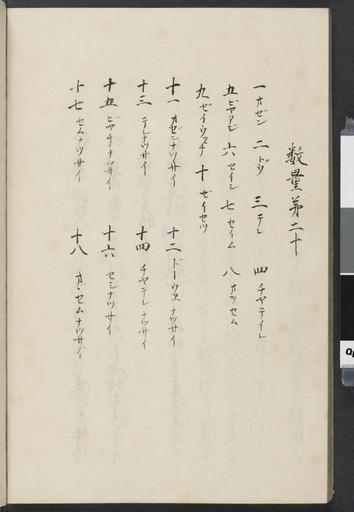 数量第二十
一 オゼン 二 ドヴ 三 テレ 四 チヤテイレ
五 ピヤアレ 六 セイシ 七 セイム 八 オヲセム
九 ゼイヴヤテ 十 ゼイセツ
十一 オゼンナツサイ 十二 ドーヴヱナツサイ
十三 テレナツサイ 十四 チヤテレナツサイ
十五 ピヤチナツサイ 十六 セシナツサイ
十七 セムナツサイ 十八 オヽセムナツサイ